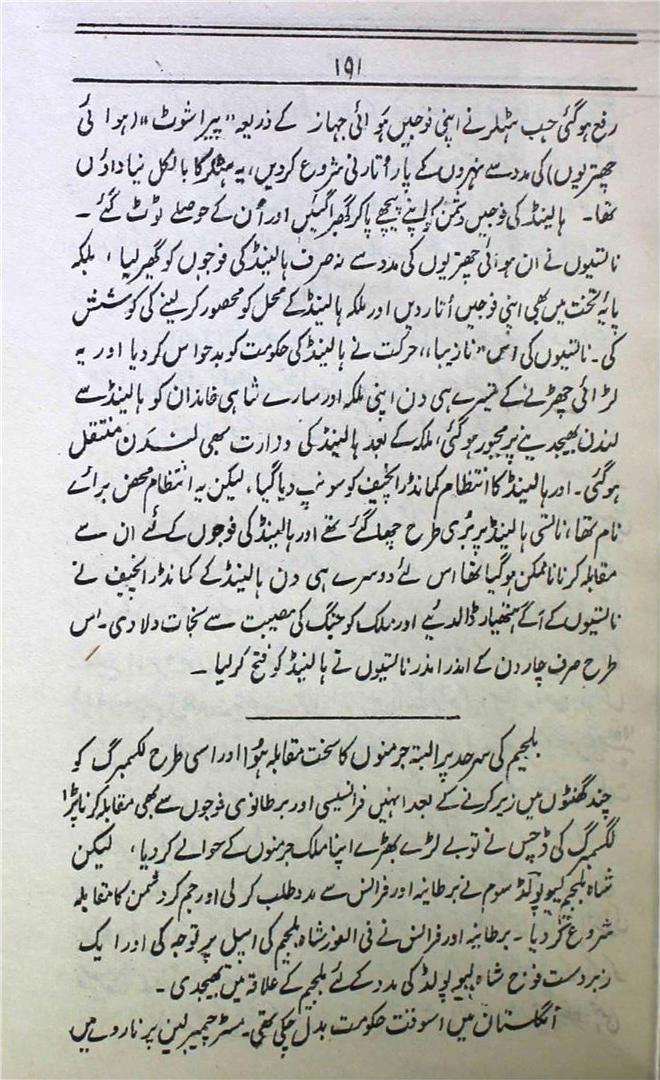 ۱۹۱
رفع ہوگئی جب ہٹلر نے اپنی فوجیں ہوائی جہاز کے ذریعہ "پیراشوٹ" (ہوائی
چھتریوں) کی مدد سے نہروں کے پار اُتارنی شروع کردیں، یہ ہٹلر کا بالکل نیا داؤں
تھا۔ ہالینڈ کی فوجیں دشمن کو اپنے پیچھے پاکر گھبرا گئیں اور اُن کے حوصلے ٹوٹ گئے۔
ناتسیوں نے ان ہوائی چھتریوں کی مدد سے نہ صرف ہالینڈ کی فوجوں کو گھیر لیا، بلکہ
پایۂ تخت میں بھی اپنی فوجیں اُتار دیں اور ملکہ ہالینڈ کے محل کو محصور کر لینے کی کوشش
کی۔ ناتسیوں کی اس "نازیبا" حرکت نے ہالینڈ کی حکومت کو بدحواس کر دیا اور یہ
لڑائی چھڑنے کے تیسرے ہی دن اپنی ملکہ اور سارے شاہی خاندان کو ہالینڈ سے
لندن بھیجدینے پر مجبور ہوگئی، ملکہ کے بعد ہالینڈ کی وزارت بھی لندن منتقل
ہوگئی۔ اور ہالینڈ کا انتظام کمانڈر الچیف کو سونپ دیا گیا، لیکن یہ انتظام محض برائے
نام تھا، ناتسی ہالینڈ پر بُری طرح چھا گئے تھے اور ہالینڈ کی فوجوں کے لئے ان سے
مقابلہ کرنا ناممکن ہوگیا تھا اس لئے دوسرے ہی دن ہالینڈ کے کمانڈر الچیف نے
ناتسیوں کے آگے ہتھیار ڈالدئیے اور ملک کو جنگ کی مصیبت سے نجات دلا دی۔ اس
طرح صرف چار دن کے اندر اندر ناتسیوں نے ہالینڈ کو فتح کر لیا۔
بلجیم کی سرحد پر البتہ جرمنوں کا سخت مقابلہ ہوا اور اسی طرح لکسمبرگ کو
چند گھنٹوں میں زیر کرنے کے بعد انہیں فرانسیسی اور برطانوی فوجوں سے بھی مقابلہ کرنا پڑا
لکسمبرگ کی ڈچس نے تو بے لڑے بھڑے اپنا ملک جرمنوں کے حوالے کر دیا، لیکن
شاہ بلجیم لیوپولڈ سوم نے برطانیہ اور فرانس سے مدد طلب کر لی اور جم کر دشمن کا مقابلہ
شروع کر دیا۔ برطانیہ اور فرانس نے فی الفور شاہ بلجیم کی اپیل پر توجہ کی اور ایک
زبردست فوج شاہ لیوپولڈ کی مدد کے لئے بلجیم کے علاقہ میں بھیجدی۔
انگلستان میں اسوقت حکومت بدل چکی تھی۔ مسٹر چیمبرلین پر ناروے میں